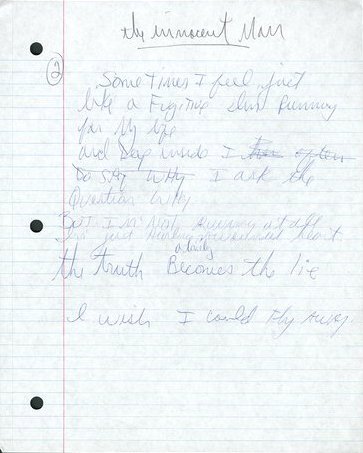 the innocent Man
2
Sometimes I feel just
like a Figitive Im Running
for My life
and Deep inside I
to say why I ask the
Question why
But I'm Not Running at all
Im just
the truth Becomes the lie
I wish I could Fly Away.